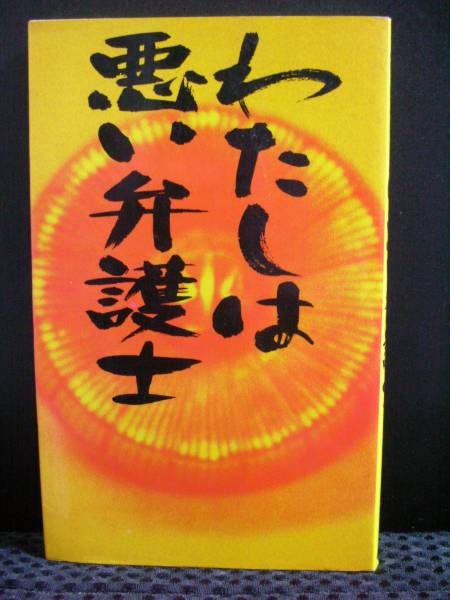 わたしは
悪い弁護士